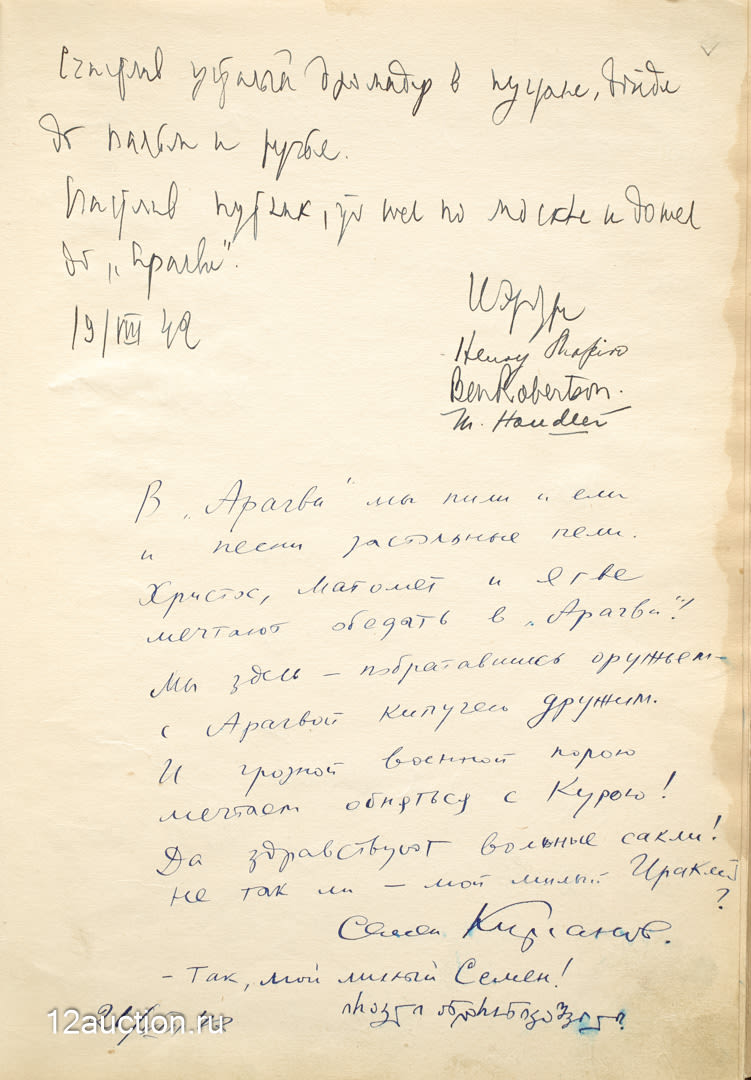 Счастлив усталый дромадер в пустыне, дойдя
до пальм и ручья.
Счастлив путник, что шел по Москве и дошел
до „Арагви“.
19/VIII 42
Henry Shapiro
Ben Robertson.
M. Handler
В „Арагви“ мы пили и ели
и песни застольные пели.
Христос, Магомет и Ягве
мечтают обедать в „Арагви“!
Мы здесь – побратавшись оружьем –
с Арагвой кипучею дружим.
И грозной военной порою
мечтаем обняться с Курою!
Да здравствуют вольные сакли!
не так ли – мой милый Ираклий
?
Семен Кирсанов.
– Так, мой милый Семен!
12auction.ru